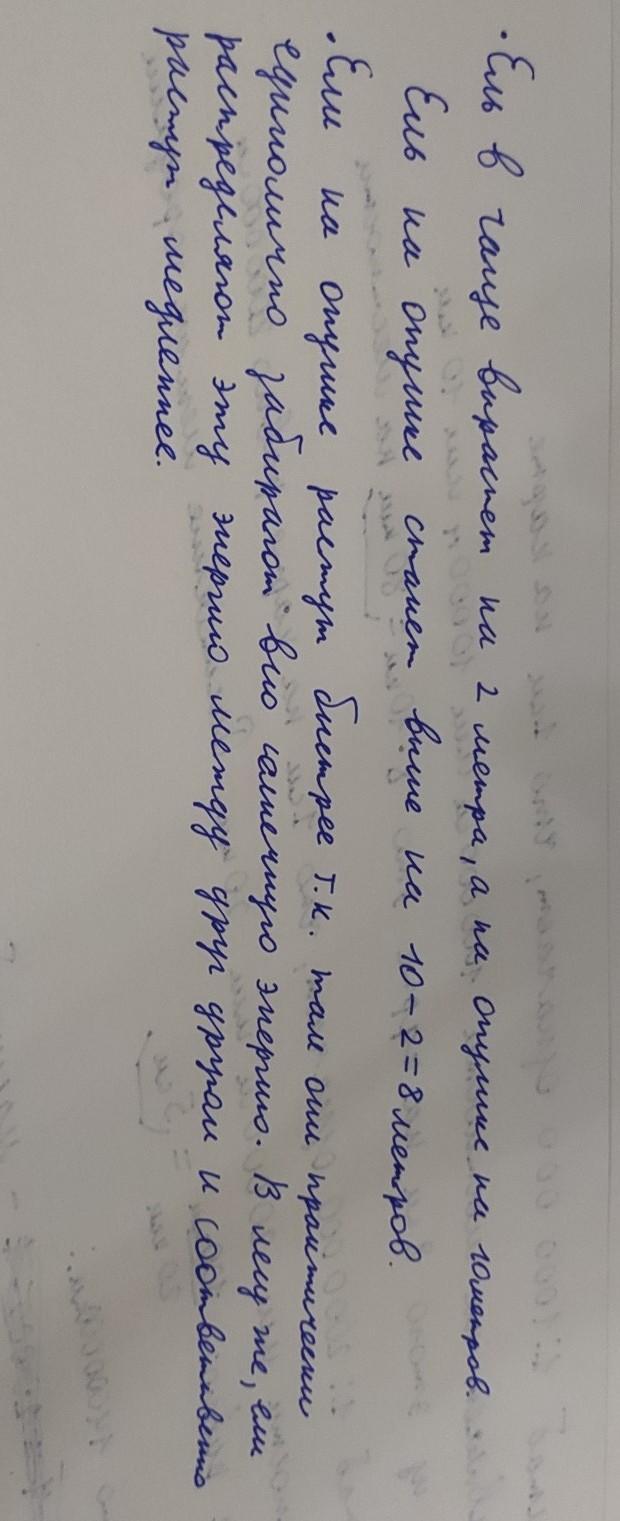 · Ель в чаще вырастет на 2 метра, а на опушке на 10 метров.
Ель на опушке станет выше на 10 - 2 = 8 метров.
· Ели на опушке растут быстрее т.к. там они практически
единолично забирают всю солнечную энергию. В лесу же, ели
распределяют эту энергию между друг другом и соответственно
растут медленнее.